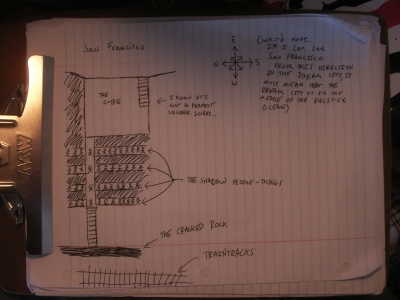 San Francisco
E
N
S
W
(Weird note
If I can see
San Francisco
from this direction
in the dream city, it
must mean that the
dream city is in the
middle of the Pacific
Ocean)
The
Cube
← I know it's
not a perfect
square sorry...
The Shadow People-Things
The Cracked Rock
Traintracks